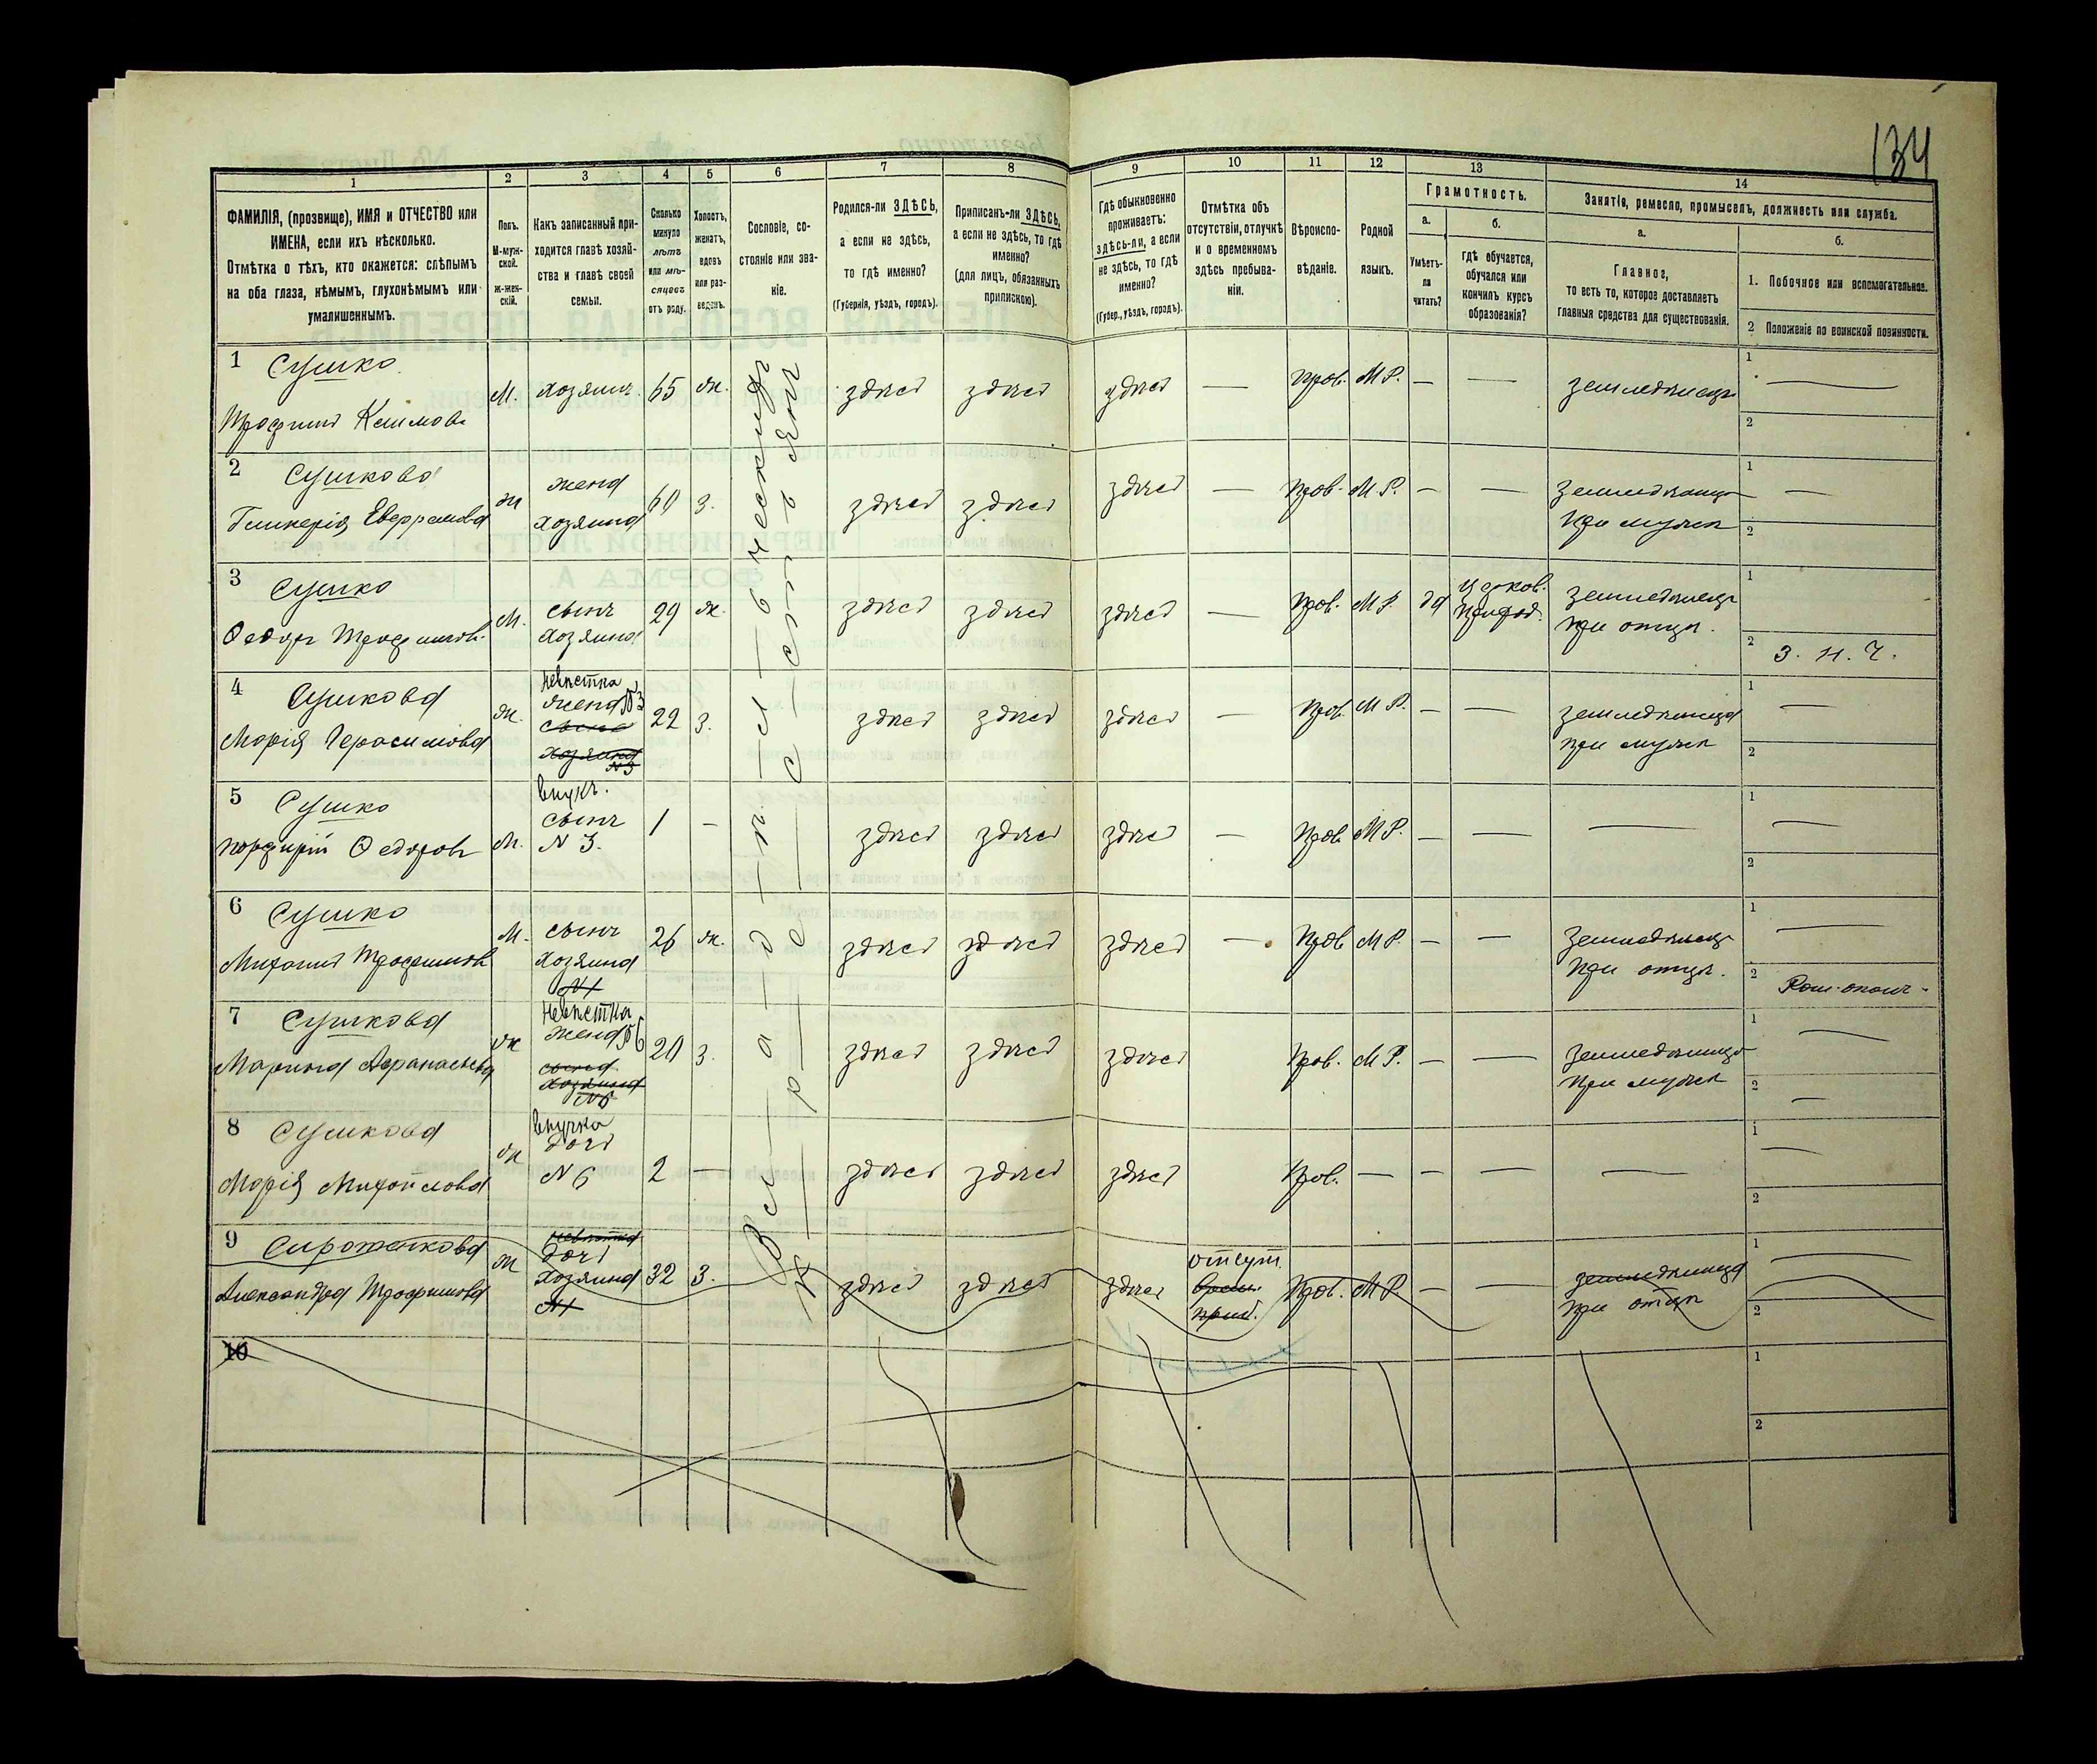 134
1 2 3 4 5 6 7 8 9 10 11 12 13 14
ФАМИЛІЯ, (прозвище), ИМЯ и ОТЧЕСТВО или
ИМЕНА, если ихъ нѣсколько.
Отмѣтка о тѣхъ, кто окажется: слѣпымъ
на оба глаза, нѣмымъ, глухонѣмымъ или
умалишеннымъ.
Полъ.
М-муж-
ской.
Ж-жен-
скій.
Какъ записанный при-
ходится главѣ хозяй-
ства и главѣ своей
семьи.
Сколько
минуло
лѣтъ
или мѣ-
сяцевъ
отъ роду.
Холостъ,
женатъ,
вдовъ
или раз-
веденъ.
Сословіе, со-
стояніе или зва-
ніе.
Родился-ли ЗДѢСЬ,
а если не здѣсь,
то гдѣ именно?
(Губернія, уѣздъ, городъ).
Приписанъ-ли ЗДѢСЬ,
а если не здѣсь, то гдѣ
именно?
(для лицъ, обязанныхъ
припискою).
Гдѣ обыкновенно
проживаетъ:
здѣсь-ли, а если
не здѣсь, то гдѣ
именно?
(Губер., уѣздъ, городъ).
Отмѣтка объ
отсутствіи, отлучкѣ
и о временномъ
здѣсь пребыва-
ніи.
Вѣроиспо-
вѣданіе.
Родной
языкъ.
Грамотность.
а.
Умѣетъ-
ли
читать?
б.
гдѣ обучается,
обучался или
кончилъ курсъ
образованія?
Занятіе, ремесло, промыселъ, должность или служба.
а.
Главное,
то есть то, которое доставляетъ
главныя средства для существованія.
б.
1. Побочное или вспомогательное.
2 Положеніе по воинской повинности.
1 Сушко
Трофимъ Климов. М. хозяинъ 65 ж. здѣсь здѣсь здѣсь — прав. М.Р. — — земледѣлецъ 1 — 2
2 Сушкова
Гликерія Евфремова ж жена
хозяина 60 з. здѣсь здѣсь здѣсь — прав. М.Р. — — земледѣлица
при мужѣ 1 — 2
3 Сушко
Федоръ Трофимов. М. сынъ
хозяина 29 ж. здѣсь здѣсь здѣсь — прав. М.Р. да Церков.
приход. земледѣлецъ
при отцѣ. 1 2 З. Н. Ч.
4 Сушкова
Марія Герасимова ж. невѣстка
жена №3
сына
хозяина
№3 22 з. здѣсь здѣсь здѣсь — прав. М.Р. — — земледѣлица
при мужѣ 1 — 2
5 Сушко
Порфирій Федоровъ М. внукъ.
сынъ
N 3. 1 — здѣсь здѣсь здѣсь — прав. М.Р. — — — 1 — 2
6 Сушко
Михаилъ Трофимовъ М. сынъ
хозяина
N 1 26 ж. здѣсь здѣсь здѣсь — прав. М.Р. — — земледѣлецъ
при отцѣ. 1 — 2
7 Сушкова
Марина Афанасьева ж невѣстка
жена №6
сына
хозяина
N6 20 з. здѣсь здѣсь здѣсь прав. М.Р. — — земледѣлица
при мужѣ 1 — 2 —
8 Сушкова
Марія Михайлова ж внучка
дочь
N 6 2 — здѣсь здѣсь здѣсь прав. — — — — 1 — 2
9 Сироженкова
Александра Трофимова ж невѣстка
дочь
хозяина
N1 32 з. здѣсь здѣсь здѣсь отсут.
врем.
приб. прав. М.Р. — — земледѣлица
при отцѣ 1 — 2
Вл-а-д-ѣ-л-ьческихъ
кр-е-с-стьянъ
10 1 2